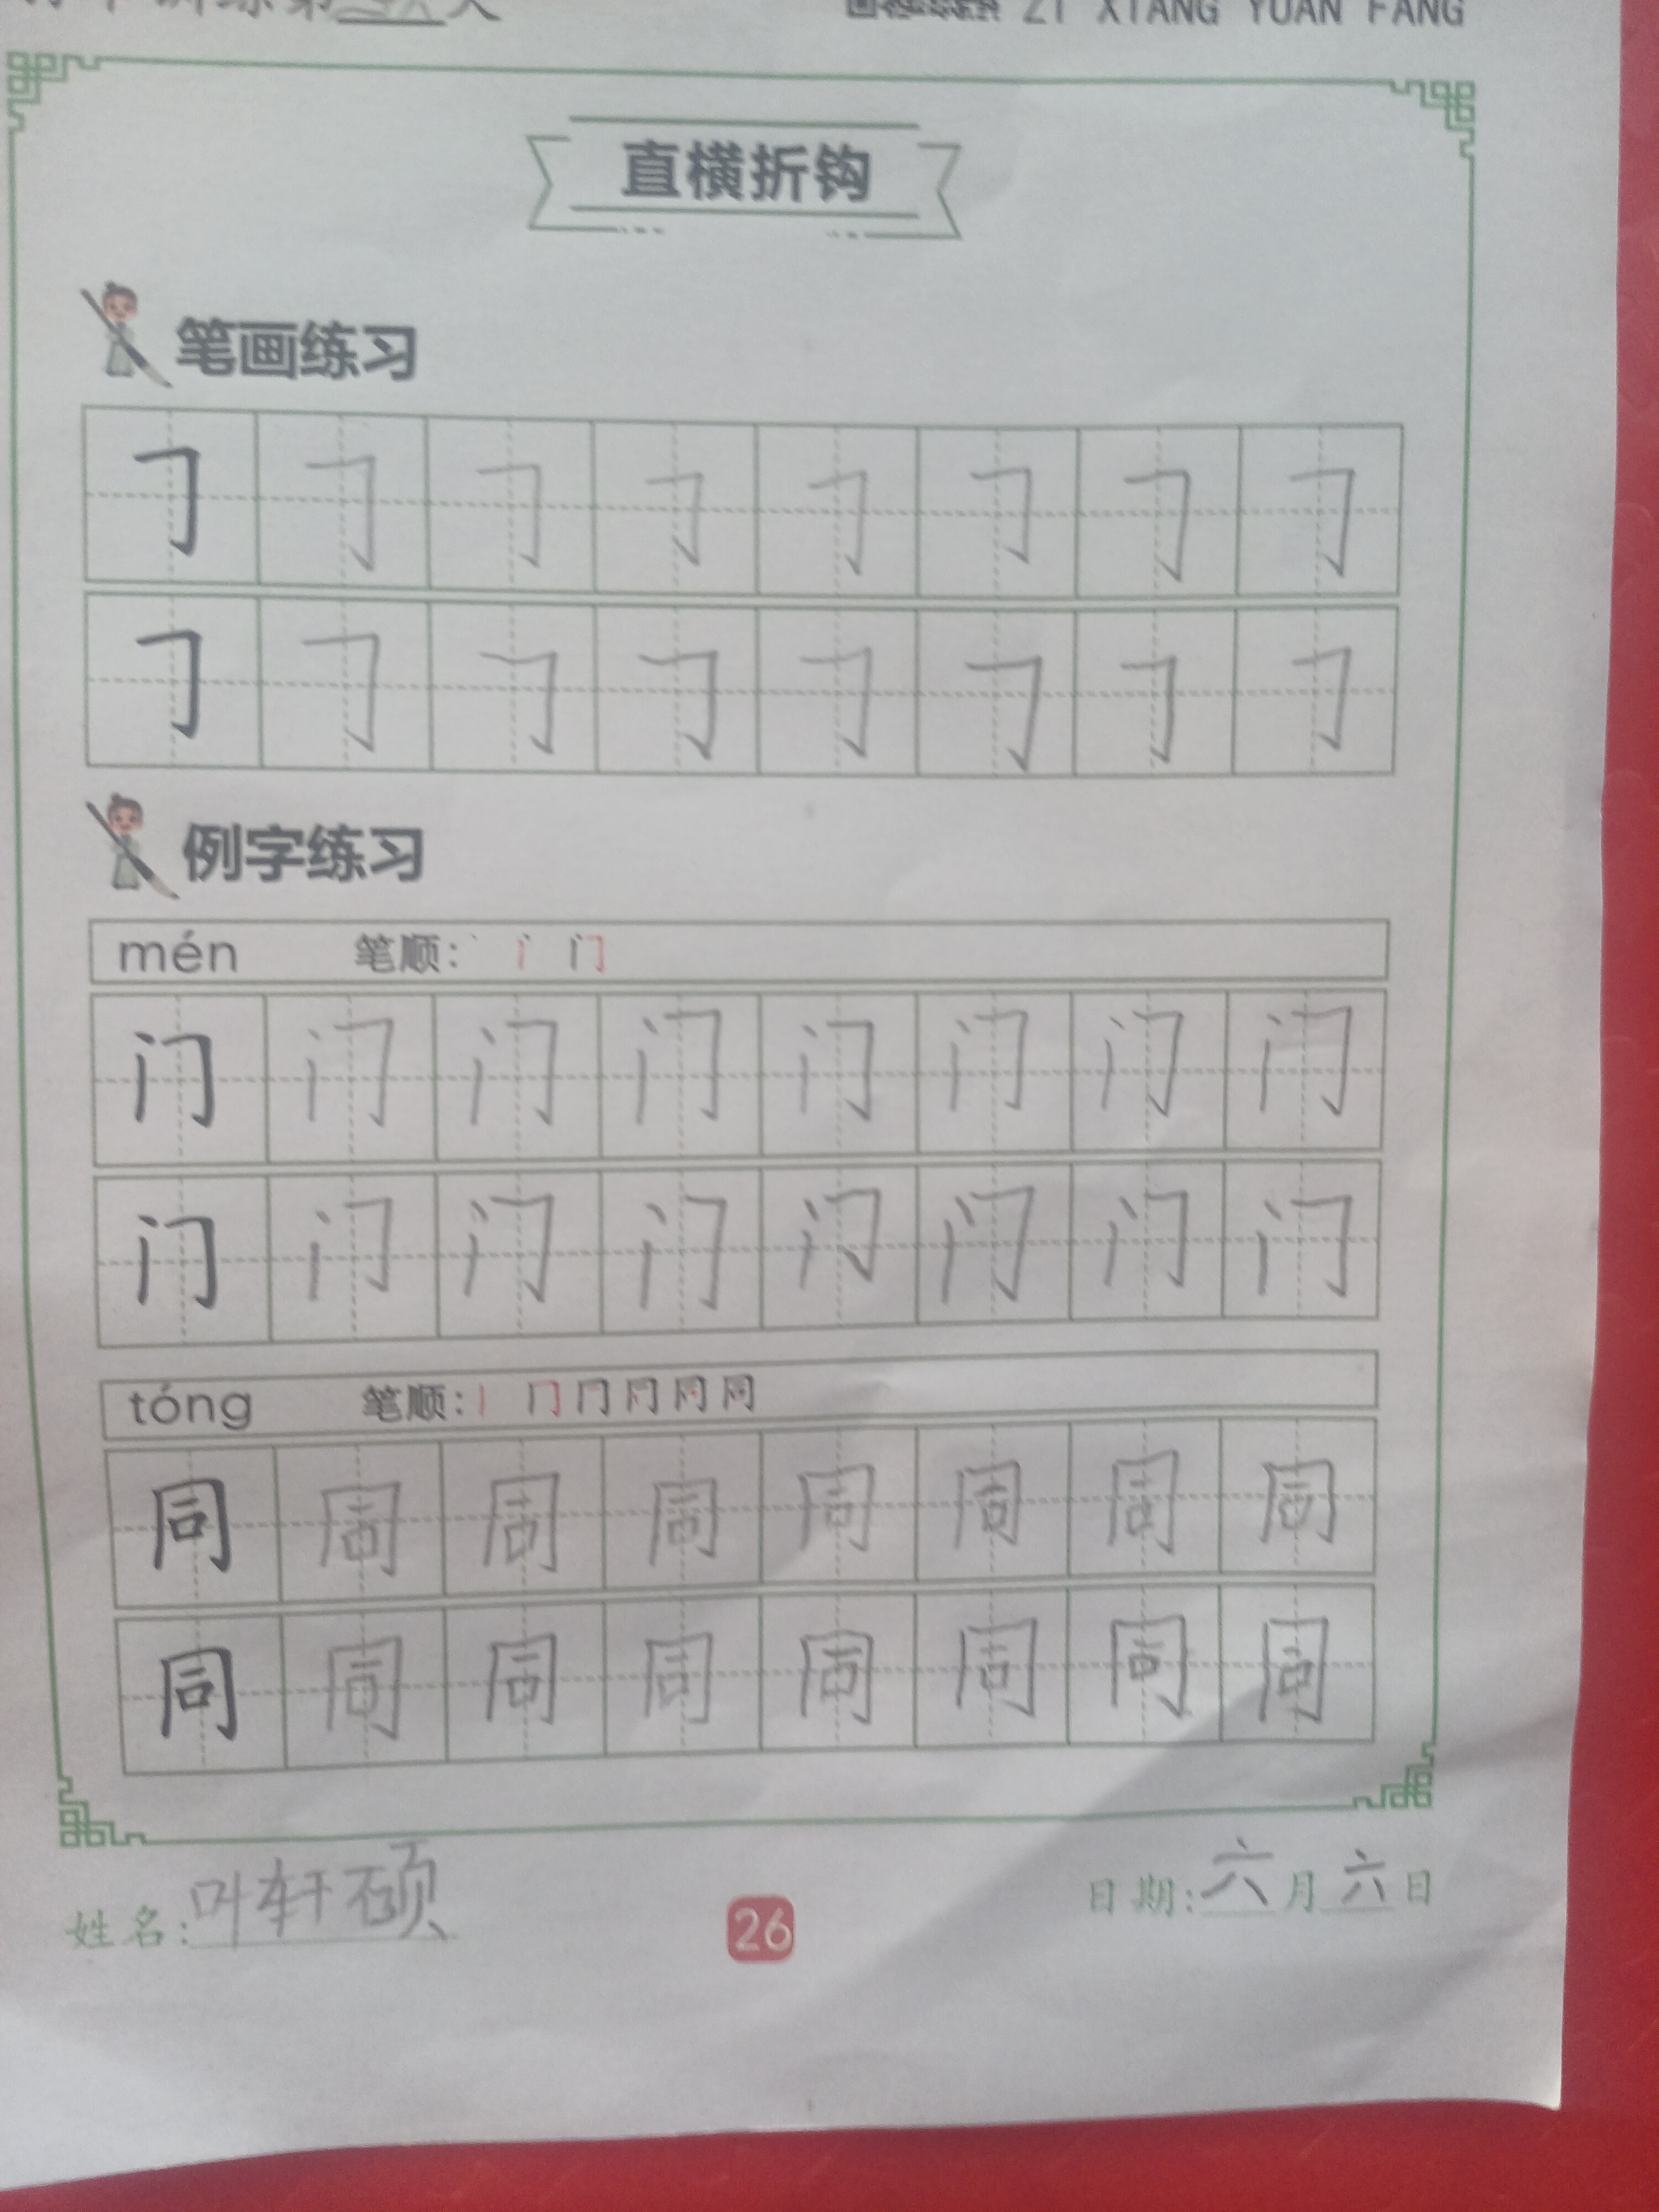 ZI XIANG YUAN FANG
直横折钩
笔画练习
㇆ ㇆ ㇆ ㇆ ㇆ ㇆ ㇆ ㇆
㇆ ㇆ ㇆ ㇆ ㇆ ㇆ ㇆ ㇆
例字练习
mén 笔顺：
门 门 门 门 门 门 门 门
门 门 门 门 门 门 门 门
tóng 笔顺：
同 同 同 同 同 同 同 同
同 同 同 同 同 同 同 同
姓名：叶轩硕 26 日期：六月六日